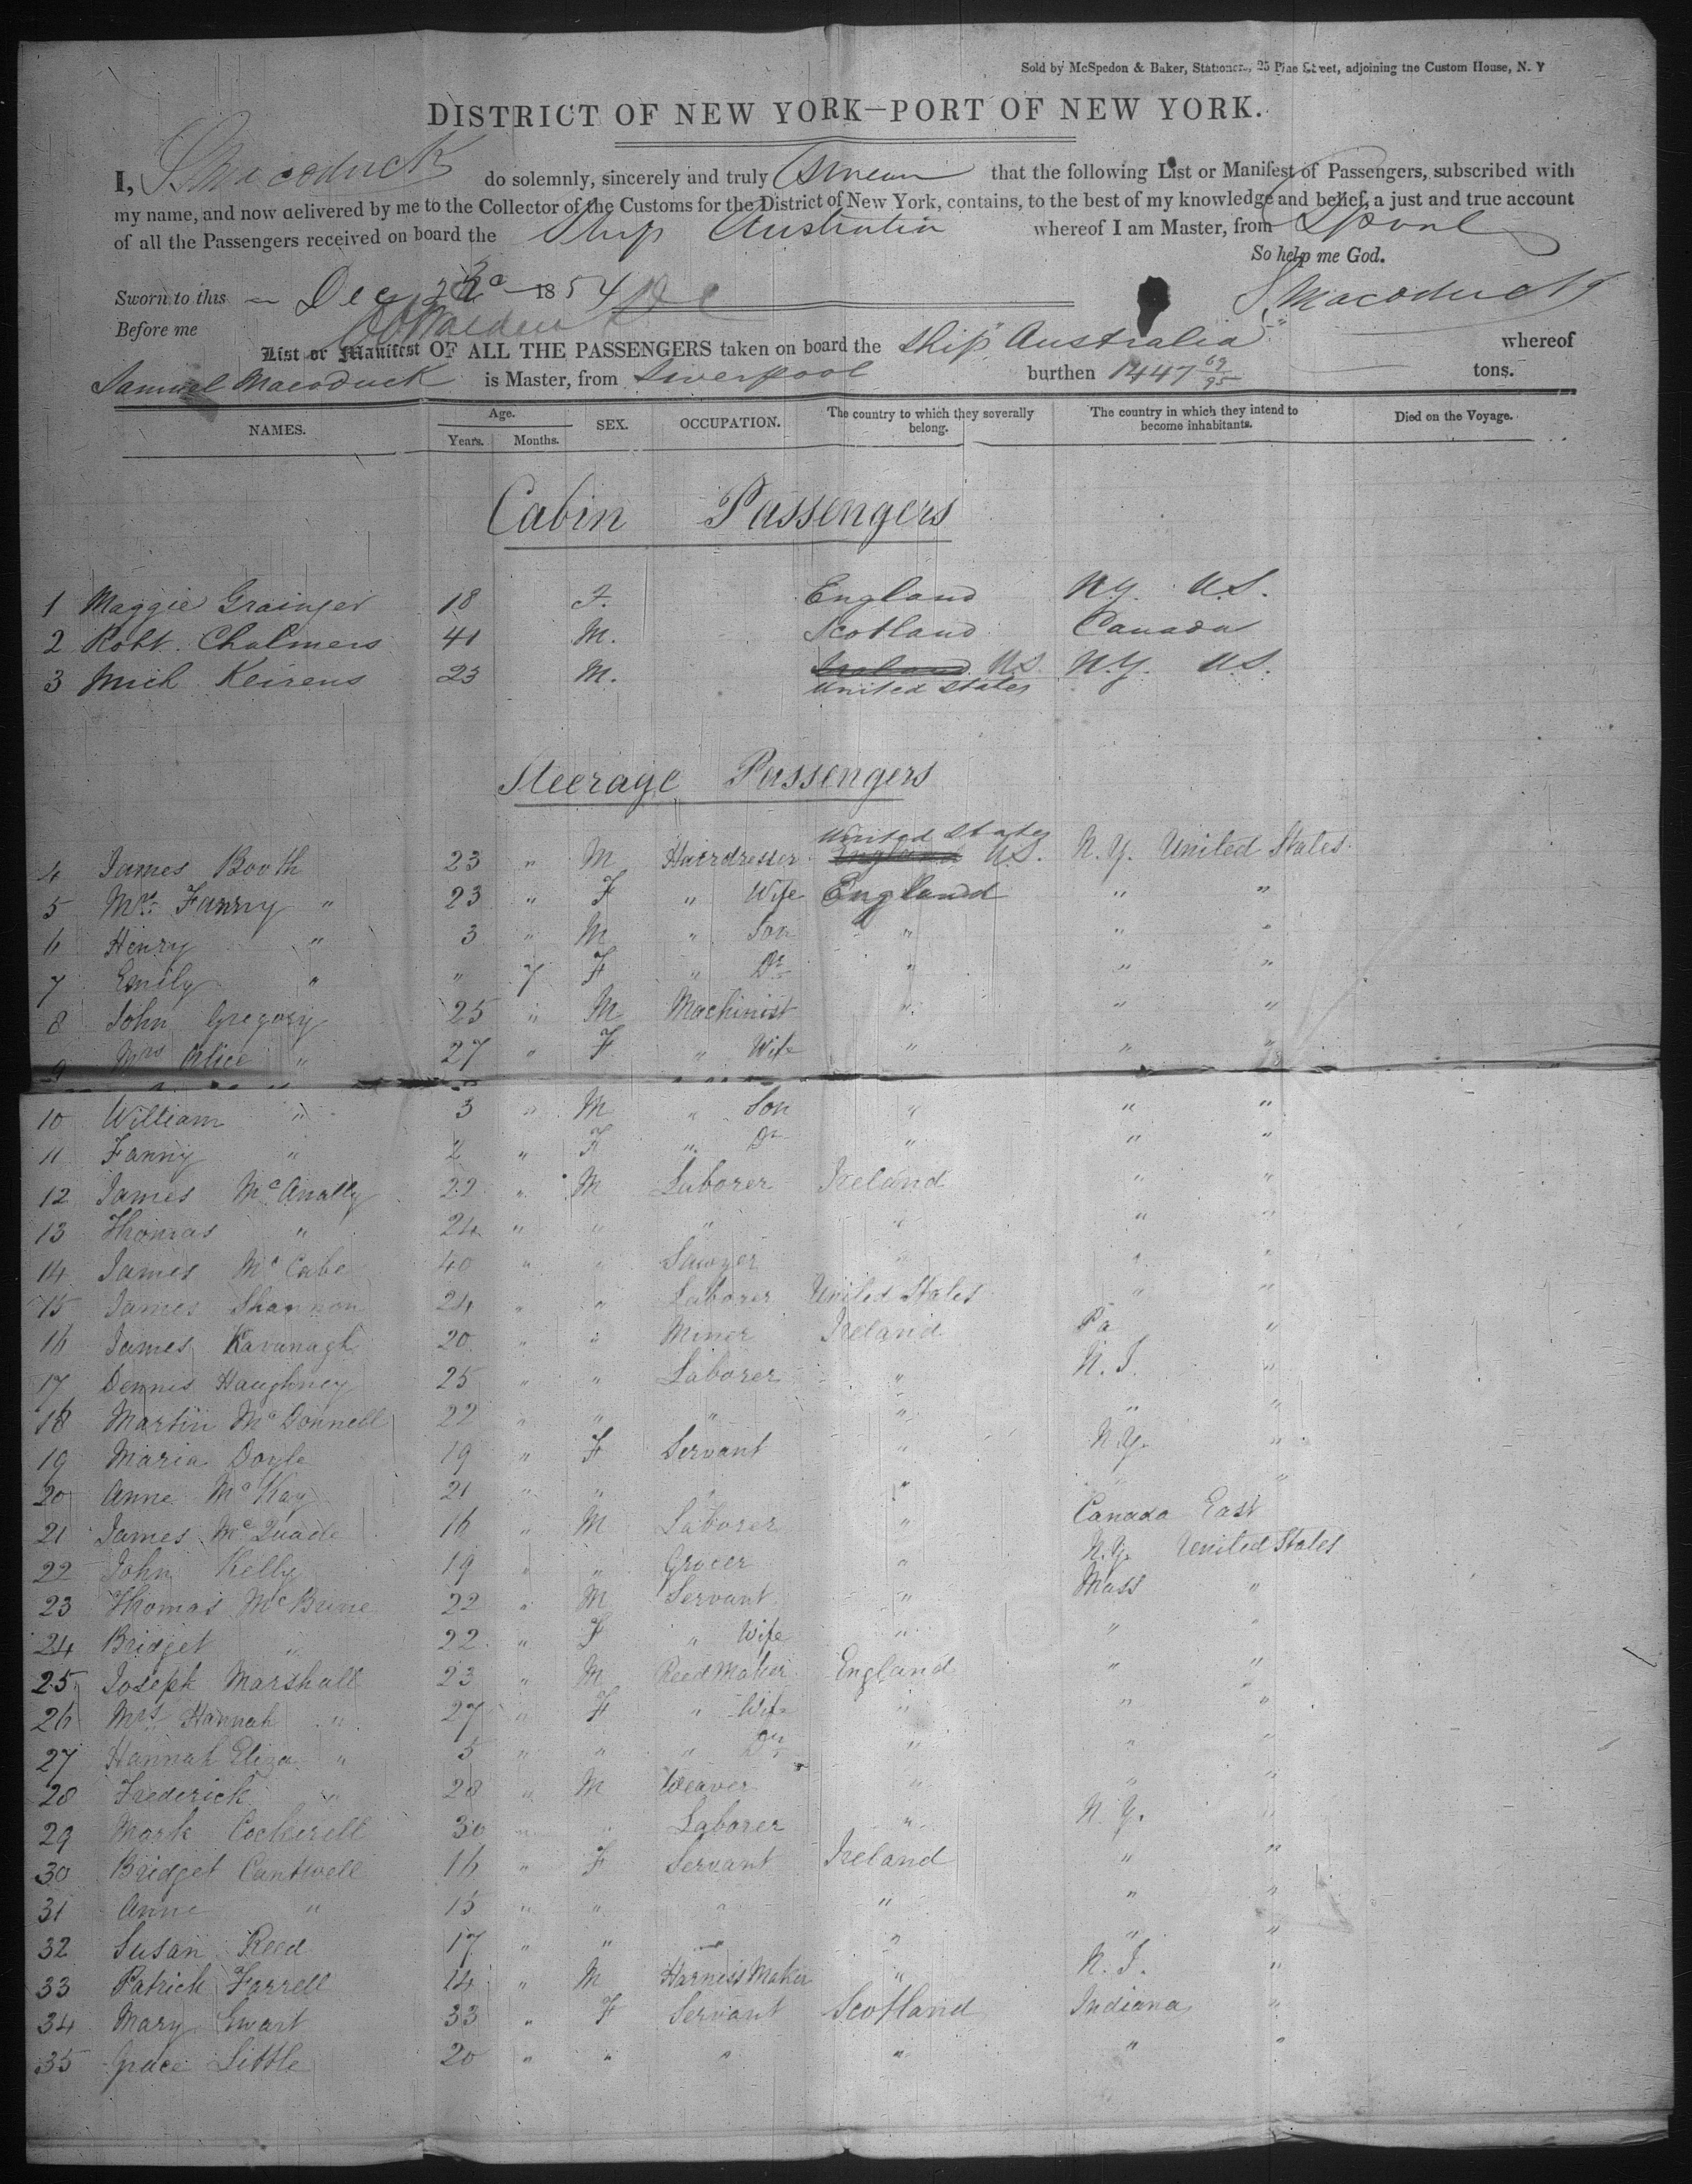 Sold by McSpedon & Baker, Stationers, 25 Pine Street, adjoining the Custom House, N. Y
DISTRICT OF NEW YORK—PORT OF NEW YORK.
I, S. Macoduck do solemnly, sincerely and truly Swear that the following List or Manifest of Passengers, subscribed with
my name, and now delivered by me to the Collector of the Customs for the District of New York, contains, to the best of my knowledge and belief, a just and true account
of all the Passengers received on board the Ship Australia whereof I am Master, from Lpool
So help me God.
Sworn to this Dec 1854 S. Macoduck
Before me
List or Manifest OF ALL THE PASSENGERS taken on board the Ship "Australia" whereof
Samuel Macoduck is Master, from Liverpool burthen 1447 69/95 tons.
NAMES. Age. Years. Months. SEX. OCCUPATION. The country to which they severally belong. The country in which they intend to become inhabitants. Died on the Voyage.
Cabin Passengers
1 Maggie Grainger 18 F. England N.Y. U.S.
2 Robt. Chalmers 41 M. Scotland Canada
3 Mich Keirens 23 M. Ireland U.S. N.Y. U.S.
United States
Steerage Passengers
United States
4 James Booth 23 " M Hairdresser England U.S. N.Y. United States
5 Mrs. Fanny " 23 " F " Wife England " "
6 Henry " 3 " M " Son " " "
7 Emily " " 7 F " Dr " " "
8 John Gregory 25 " M Machinist " " "
9 Mrs Alice " 27 " F " Wife " " "
10 William " 3 " M " Son " " "
11 Fanny " 2 " F " Dr " " "
12 James McAnally 22 " M Laborer Ireland " "
13 Thomas " 24 " " " " " "
14 James McCabe 40 " " Sawyer " " "
15 James Shannon 24 " " Laborer United States " "
16 James Kavanagh 20 " " Miner Ireland Pa "
17 Dennis Haughney 25 " " Laborer " N.J. "
18 Martin McDonnell 22 " " " " " "
19 Maria Doyle 19 " F Servant " N.Y. "
20 Anne McKay 21 " " " " " "
21 James McQuade 16 " M Laborer " Canada East
22 John Kelly 19 " " Grocer " N.Y. United States
23 Thomas McBrine 22 " M Servant " Mass "
24 Bridget " 22 " F " Wife " " "
25 Joseph Marshall 23 " M Reed Maker England " "
26 Mrs Hannah " 27 " F " Wife " " "
27 Hannah Eliza " 5 " " " Dr " " "
28 Frederick " 28 " M Weaver " " "
29 Mark Cockerell 30 " " Laborer " N.Y. "
30 Bridget Cantwell 16 " F Servant Ireland " "
31 Anne " 15 " " " " " "
32 Susan Reed 17 " " " " " "
33 Patrick Farrell 14 " M Harness Maker " N.J. "
34 Mary Ewart 33 " F Servant Scotland Indiana "
35 Grace Little 20 " " " " " "